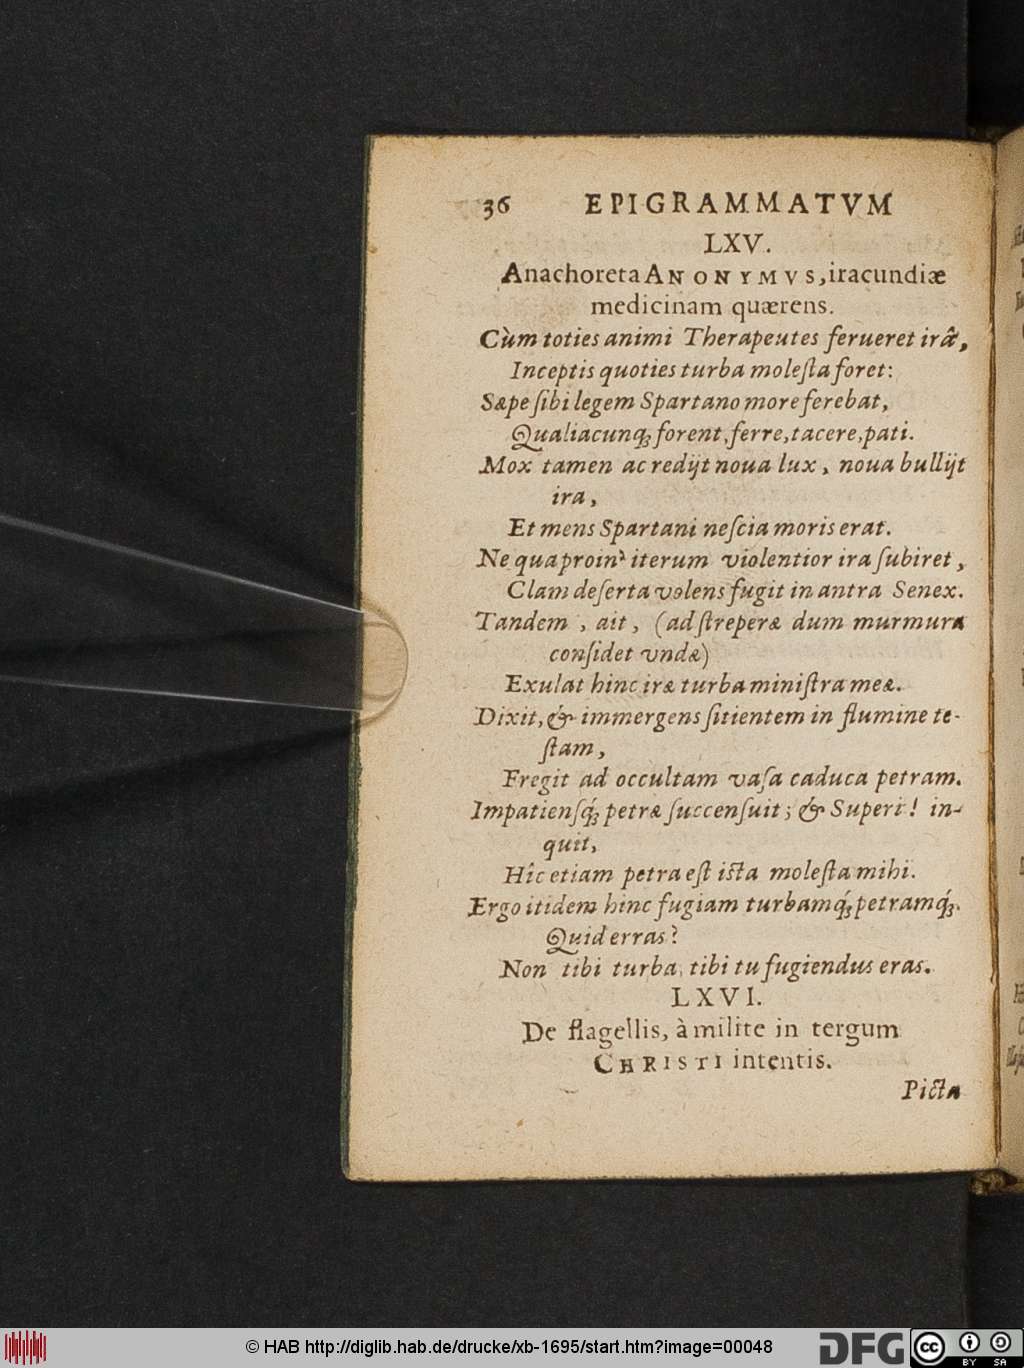 36 EPIGRAMMATVM
LXV.
Anachoreta ANONYMVS, iracundiæ
medicinam quærens.
Cùm toties animi Therapeutes ferueret irâ,
Inceptis quoties turba molesta foret:
Sæpe sibi legem Spartano more ferebat,
Qualiacunq; forent, ferre, tacere, pati.
Mox tamen ac redijt noua lux, noua bullijt
ira,
Et mens Spartani nescia moris erat.
Ne qua proin' iterum violentior ira subiret,
Clam deserta volens fugit in antra Senex.
Tandem, ait, (ad streperæ dum murmura
considet vndæ)
Exulat hinc iræ turba ministra meæ.
Dixit, & immergens sitientem in flumine te-
stam,
Fregit ad occultam vasa caduca petram.
Impatiensq́; petræ succensuit; & Superi! in-
quit,
Hîc etiam petra est ista molesta mihi.
Ergo itidem hinc fugiam turbamq́; petramq́;.
Quid erras?
Non tibi turba, tibi tu fugiendus eras.
LXVI.
De flagellis, à milite in tergum
CHRISTI intentis.
Picta
© HAB http://diglib.hab.de/drucke/xb-1695/start.htm?image=00048
DFG
cc
BY SA